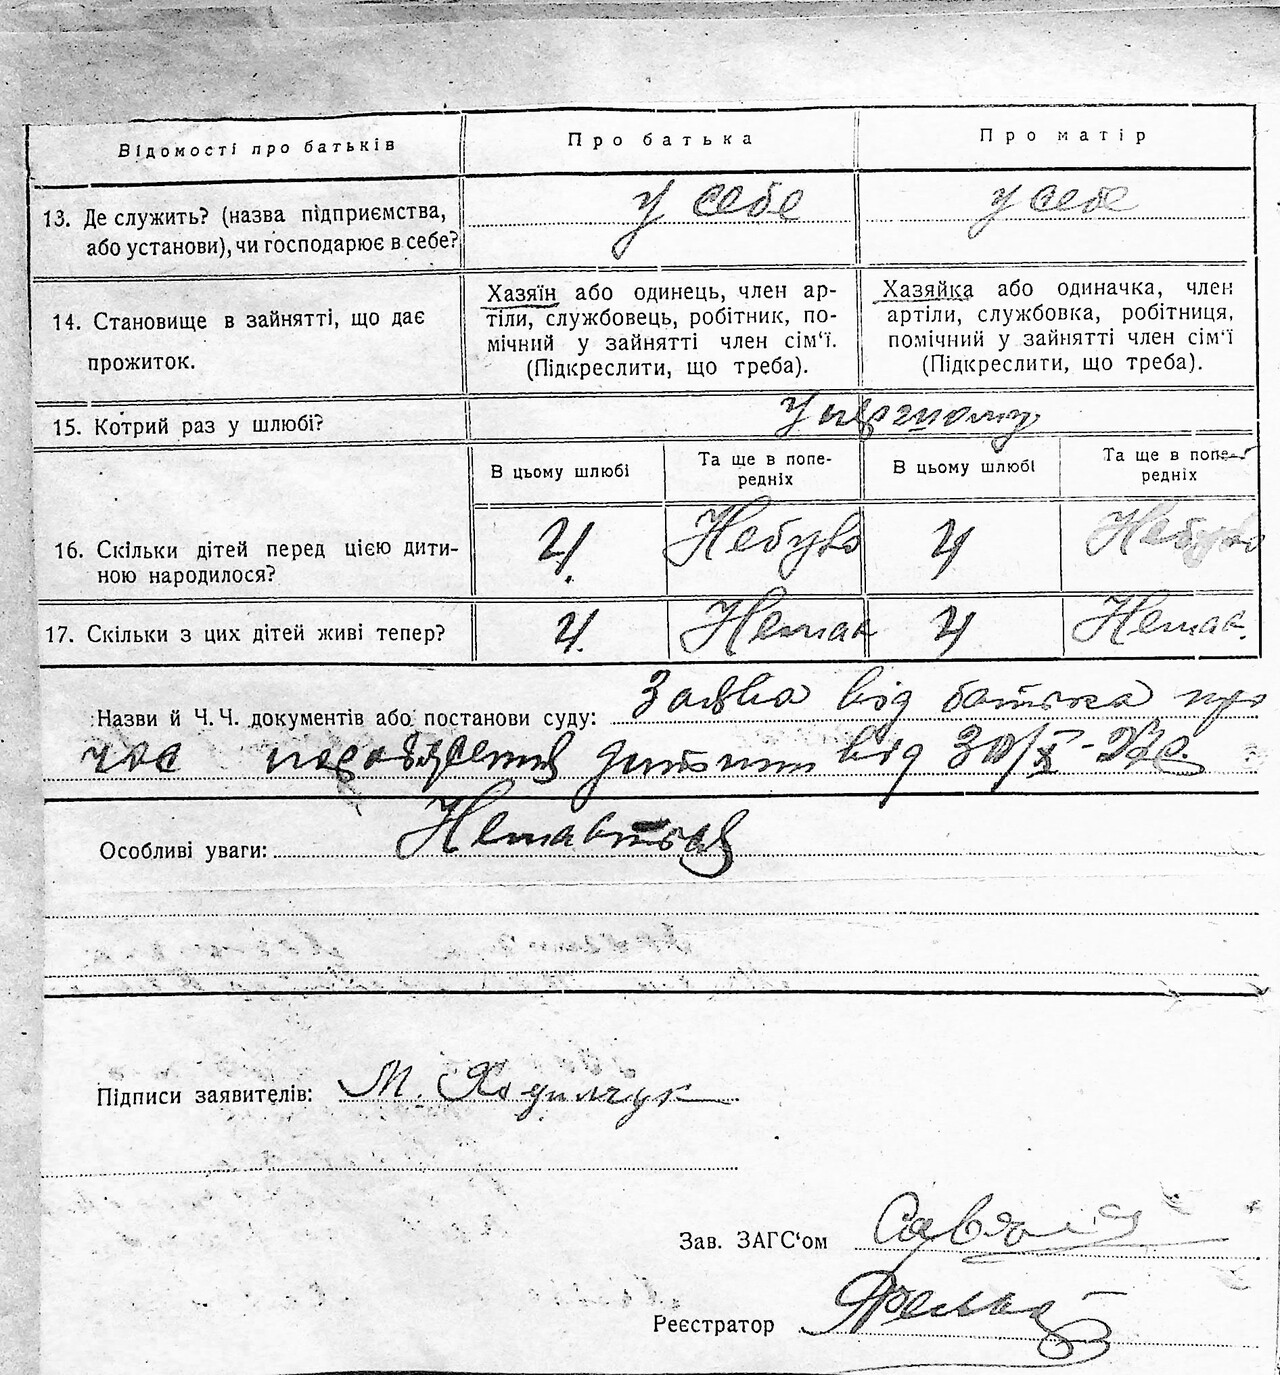 Відомості про батьків
Про батька
Про матір
13. Де служить? (назва підприємства,
або установи), чи господарює в себе?
у себе
у себе
14. Становище в зайнятті, що дає
прожиток.
Хазяїн або одинець, член ар-
тіли, службовець, робітник, по-
мічний у зайнятті член сім‘ї.
(Підкреслити, що треба).
Хазяйка або одиначка, член
артіли, службовка, робітниця,
помічний у зайнятті член сім‘ї
(Підкреслити, що треба).
15. Котрий раз у шлюбі?
У першому
В цьому шлюбі
Та ще в попе-
редніх
В цьому шлюбі
Та ще в попе-
редніх
16. Скільки дітей перед цією дити-
ною народилося?
4.
Небуло
4
Небуло
17. Скільки з цих дітей живі тепер?
4.
Немає
4
Немає.
Назви й Ч.Ч. документів або постанови суду: Заява від батька про
час народження дитини від 30/X-
Особливі уваги:
Підписи заявителів: М. Ходимчук
Зав. ЗАГС‘ом
Реєстратор